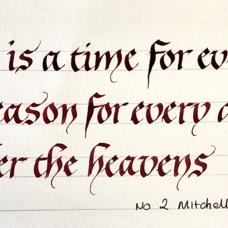 is a time for ev
eason for every a
er the heavens
No 2 Mitchell